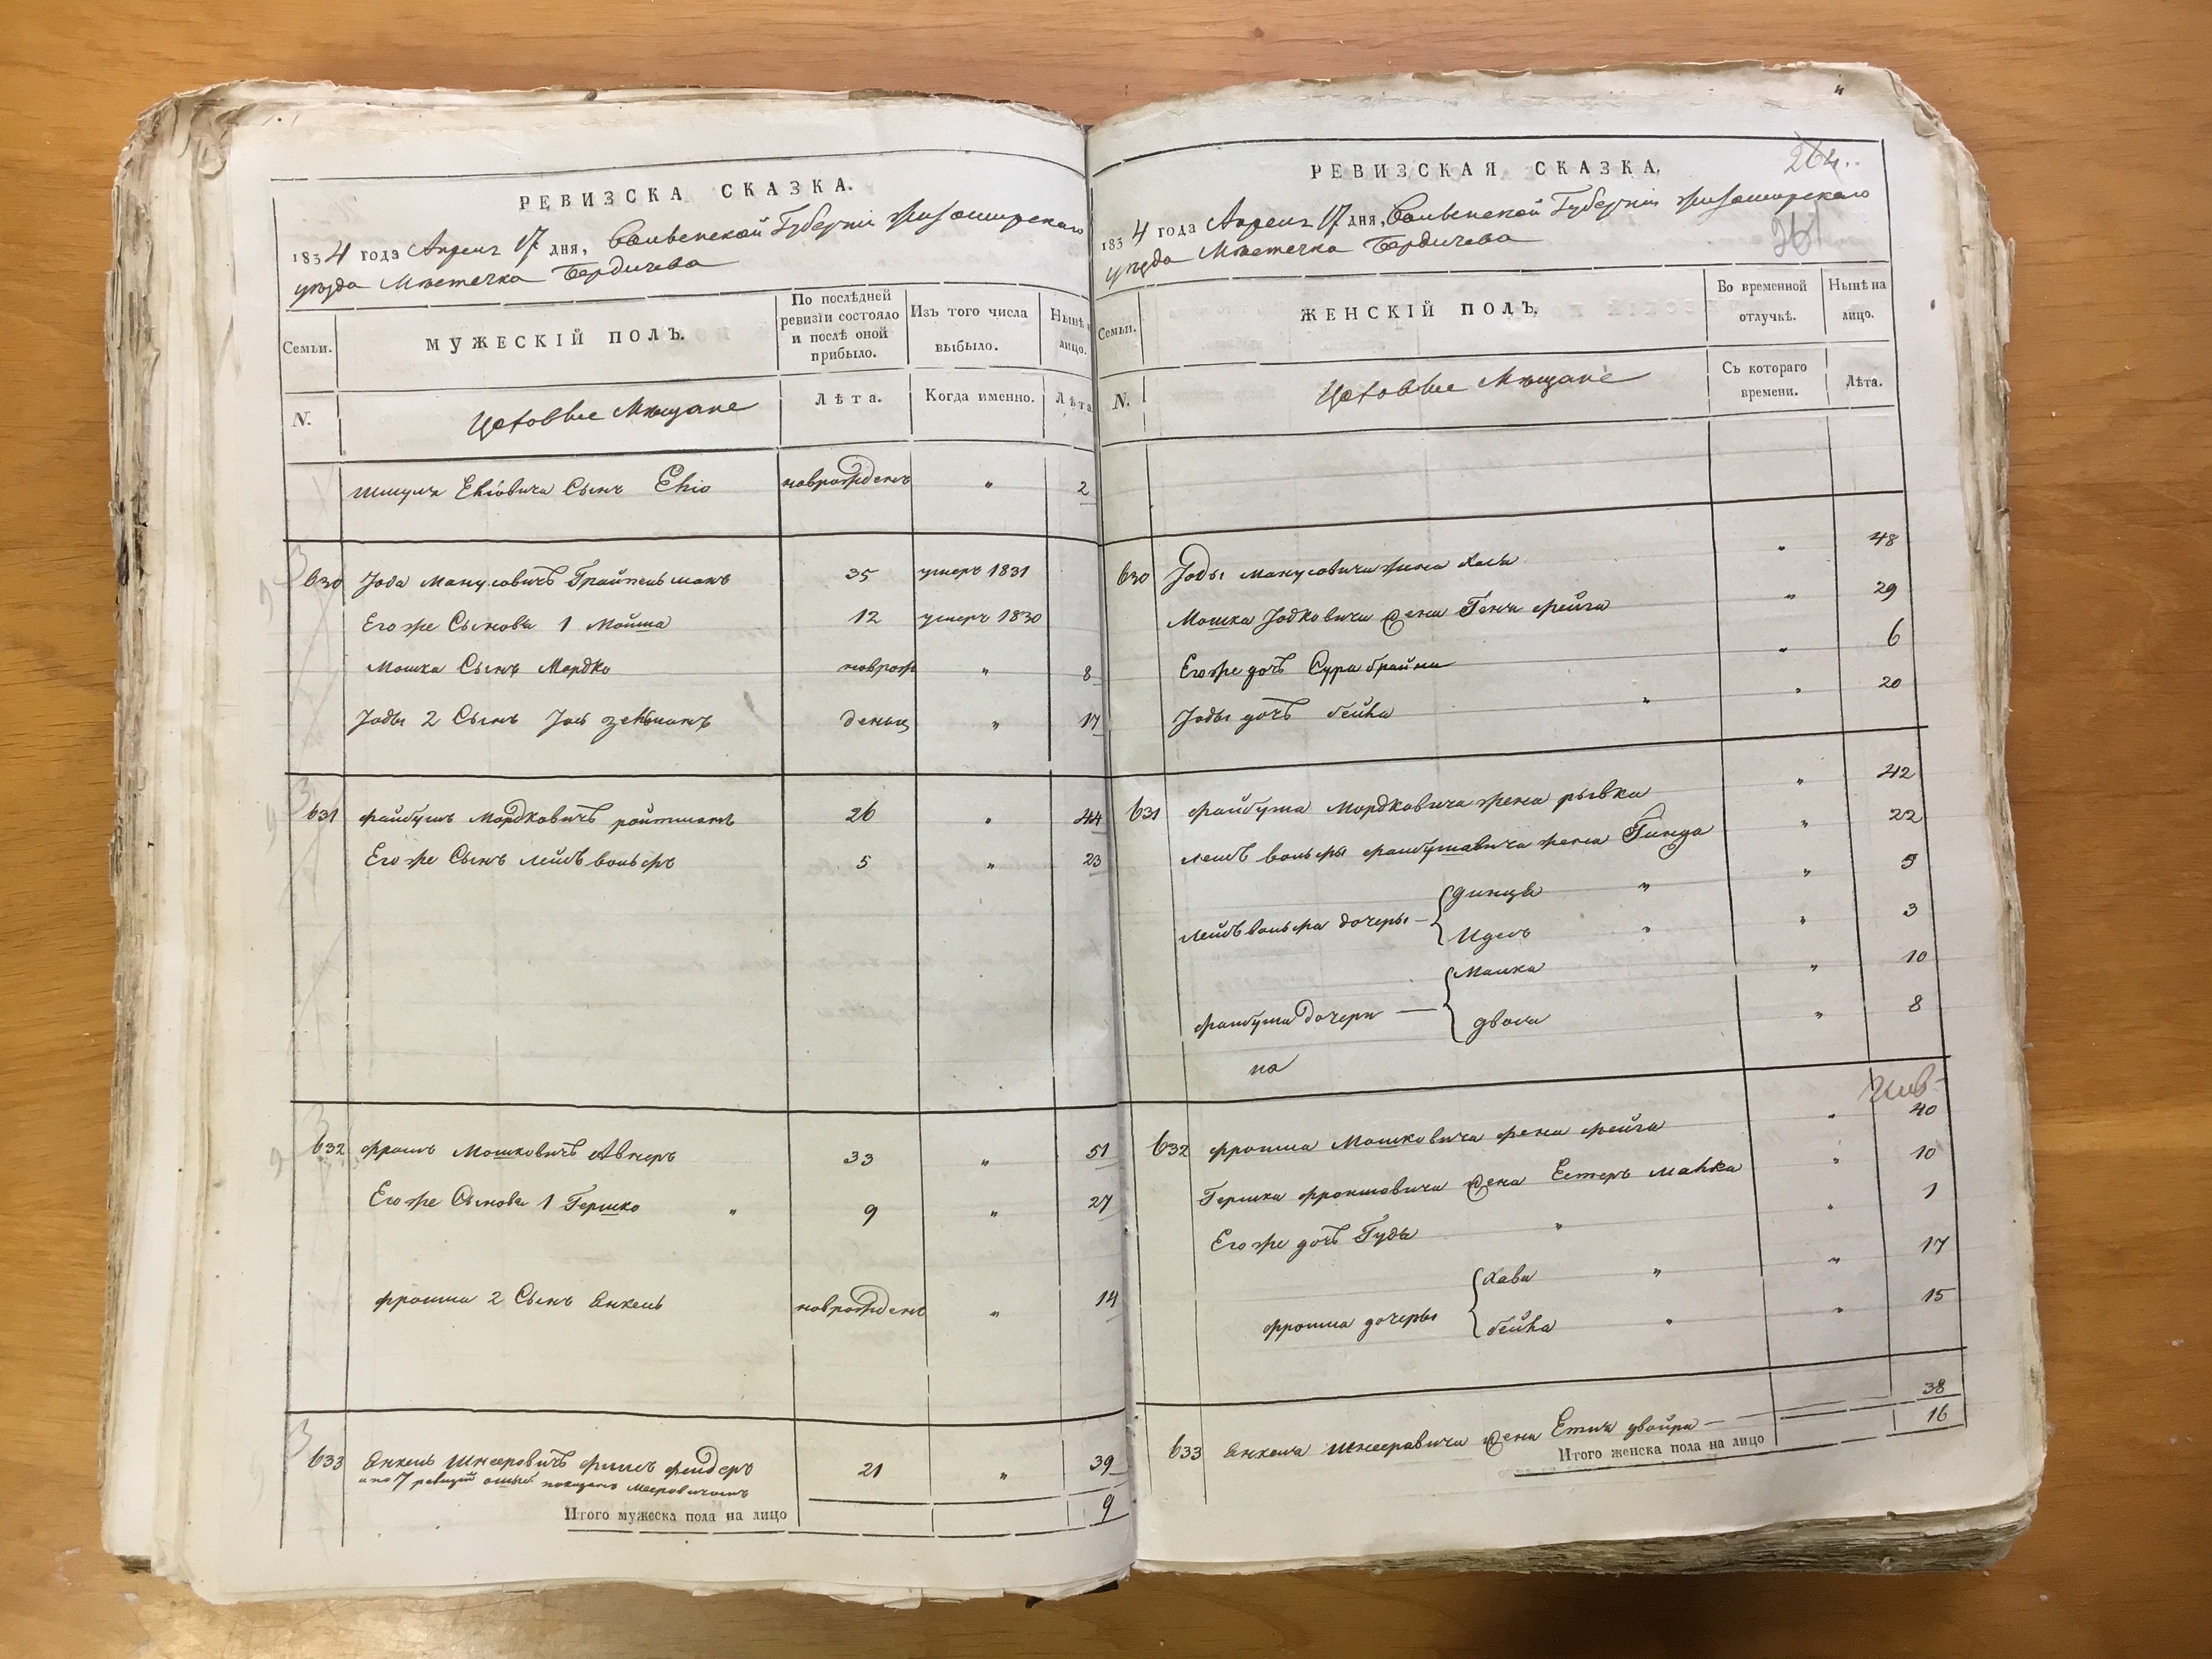 РЕВИЗСКА СКАЗКА.
1834 года Апреля 17 дня, Волынской Губерніи Житомирскаго
уѣзда Мѣстечка Бердичева
Семьи.
МУЖЕСКІЙ ПОЛЪ.
По послѣдней ревизіи состояло и послѣ оной прибыло.
Изъ того числа выбыло.
Нынѣ лицо.
N.
Цеховые Мѣщане
Лѣта.
Когда именно.
Лѣта
Шмуля Ehiовича Сынъ Ehio новрожденъ " 2
630 Іода Манусовичъ Грайпельманъ 35 умеръ 1831
Его же Сыновья 1 Мошка 12 умеръ 1830
Мошка Сынъ Мордко новрож " 8
Іоды 2 Сынъ Іось Зельманъ денны " 17
631 Файбушъ Мордковичъ ройтманъ 26 " 44
Его же Сынъ Лейбъ вольфъ 5 " 23
632 Фроимъ Мошковичъ Авнеръ 33 " 51
Его же Сыновья 1 Гершко " 9 " 27
Фроима 2 Сынъ Янкель новрожденъ " 14
633 Янкель Шнееровичъ 21 " 39
а по 7 ревизіи ошиб. показанъ Мееровичомъ
Итого мужеска пола на лицо 9
РЕВИЗСКАЯ СКАЗКА.
264..
1834 года Апреля 17 дня, Волынской Губерніи Житомирскаго
261
уѣзда Мѣстечка Бердичева
Семьи.
ЖЕНСКІЙ ПОЛЪ.
Во временной отлучкѣ.
Нынѣ на лицо.
N.
Цеховые Мѣщане
Съ котораго времени.
Лѣта.
630 Іоды Манусовича жена Хася " 48
Мошка Іодковича жена Геня фейга " 29
Его же дочь Сура брайна " 6
Іоды дочь бейла " " 20
631 Файбуша Мордковича жена рывка " 42
Лейбъ вольфы Файбушовича жена Гинда " 22
Лейбъ вольфа дочеры { динця " " 5
Идесъ " " 3
Файбуша дочери { Малка " 10
двоси " 8
на
632 Фроима Мошковича жена фейга " 40
Гершка Фроимовича жена Естеръ Малка " 10
Его же дочь Гуда " " 1
Фроима дочеры { Хава " " 17
бейла " " 15
633 Янкеля Шнееровича жена Етля двойра 38
Итого женска пола на лицо 16